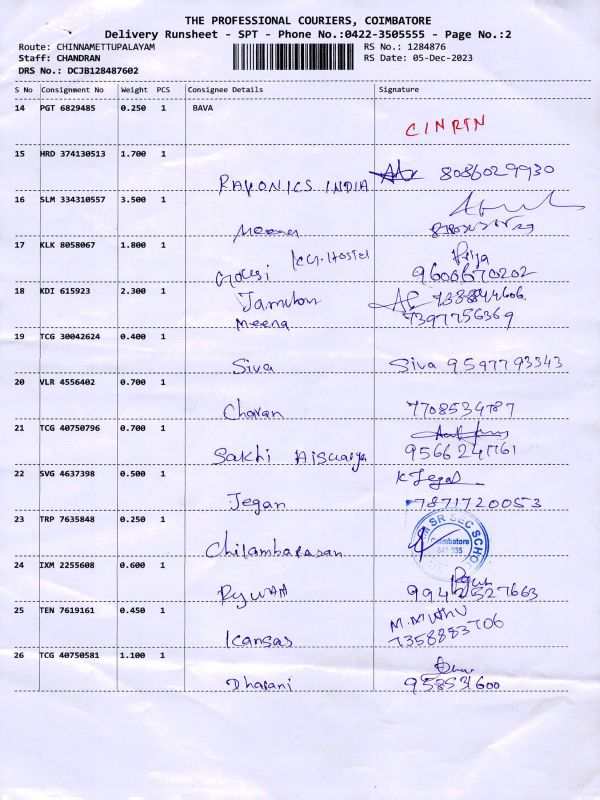 THE PROFESSIONAL COURIERS, COIMBATORE
Delivery Runsheet - SPT - Phone No.:0422-3505555 - Page No.:2
Route: CHINNAMETTUPALAYAM RS No.: 1284876
Staff: CHANDRAN RS Date: 05-Dec-2023
DRS No.: DCJB128487602
S No Consignment No Weight PCS Consignee Details Signature
14 PGT 6829485 0.250 1 BAVA
CINRTN
15 HRD 374130513 1.700 1
RAVONICS INDIA 8086029930
16 SLM 334310557 3.500 1
Meena
17 KLK 8058067 1.800 1 Priya
Gowsi KCT.Hostel 9600670202
18 KDI 615923 2.300 1
Meena 7397756369
19 TCG 30042624 0.400 1
Siva Siva 9597793343
20 VLR 4556402 0.700 1
Charan 7708534787
21 TCG 40750796 0.700 1
Sakhi Aiswarya 9566241761
22 SVG 4637398 0.500 1 K Jegan
Jegan 7871720053
23 TRP 7635848 0.250 1 SR SEC SCHO
Coimbatore
Chilambarasan
24 IXM 2255608 0.600 1
25 TEN 7619161 0.450 1 M. Muthu
Kansas 7358883706
26 TCG 40750581 1.100 1
Dharani